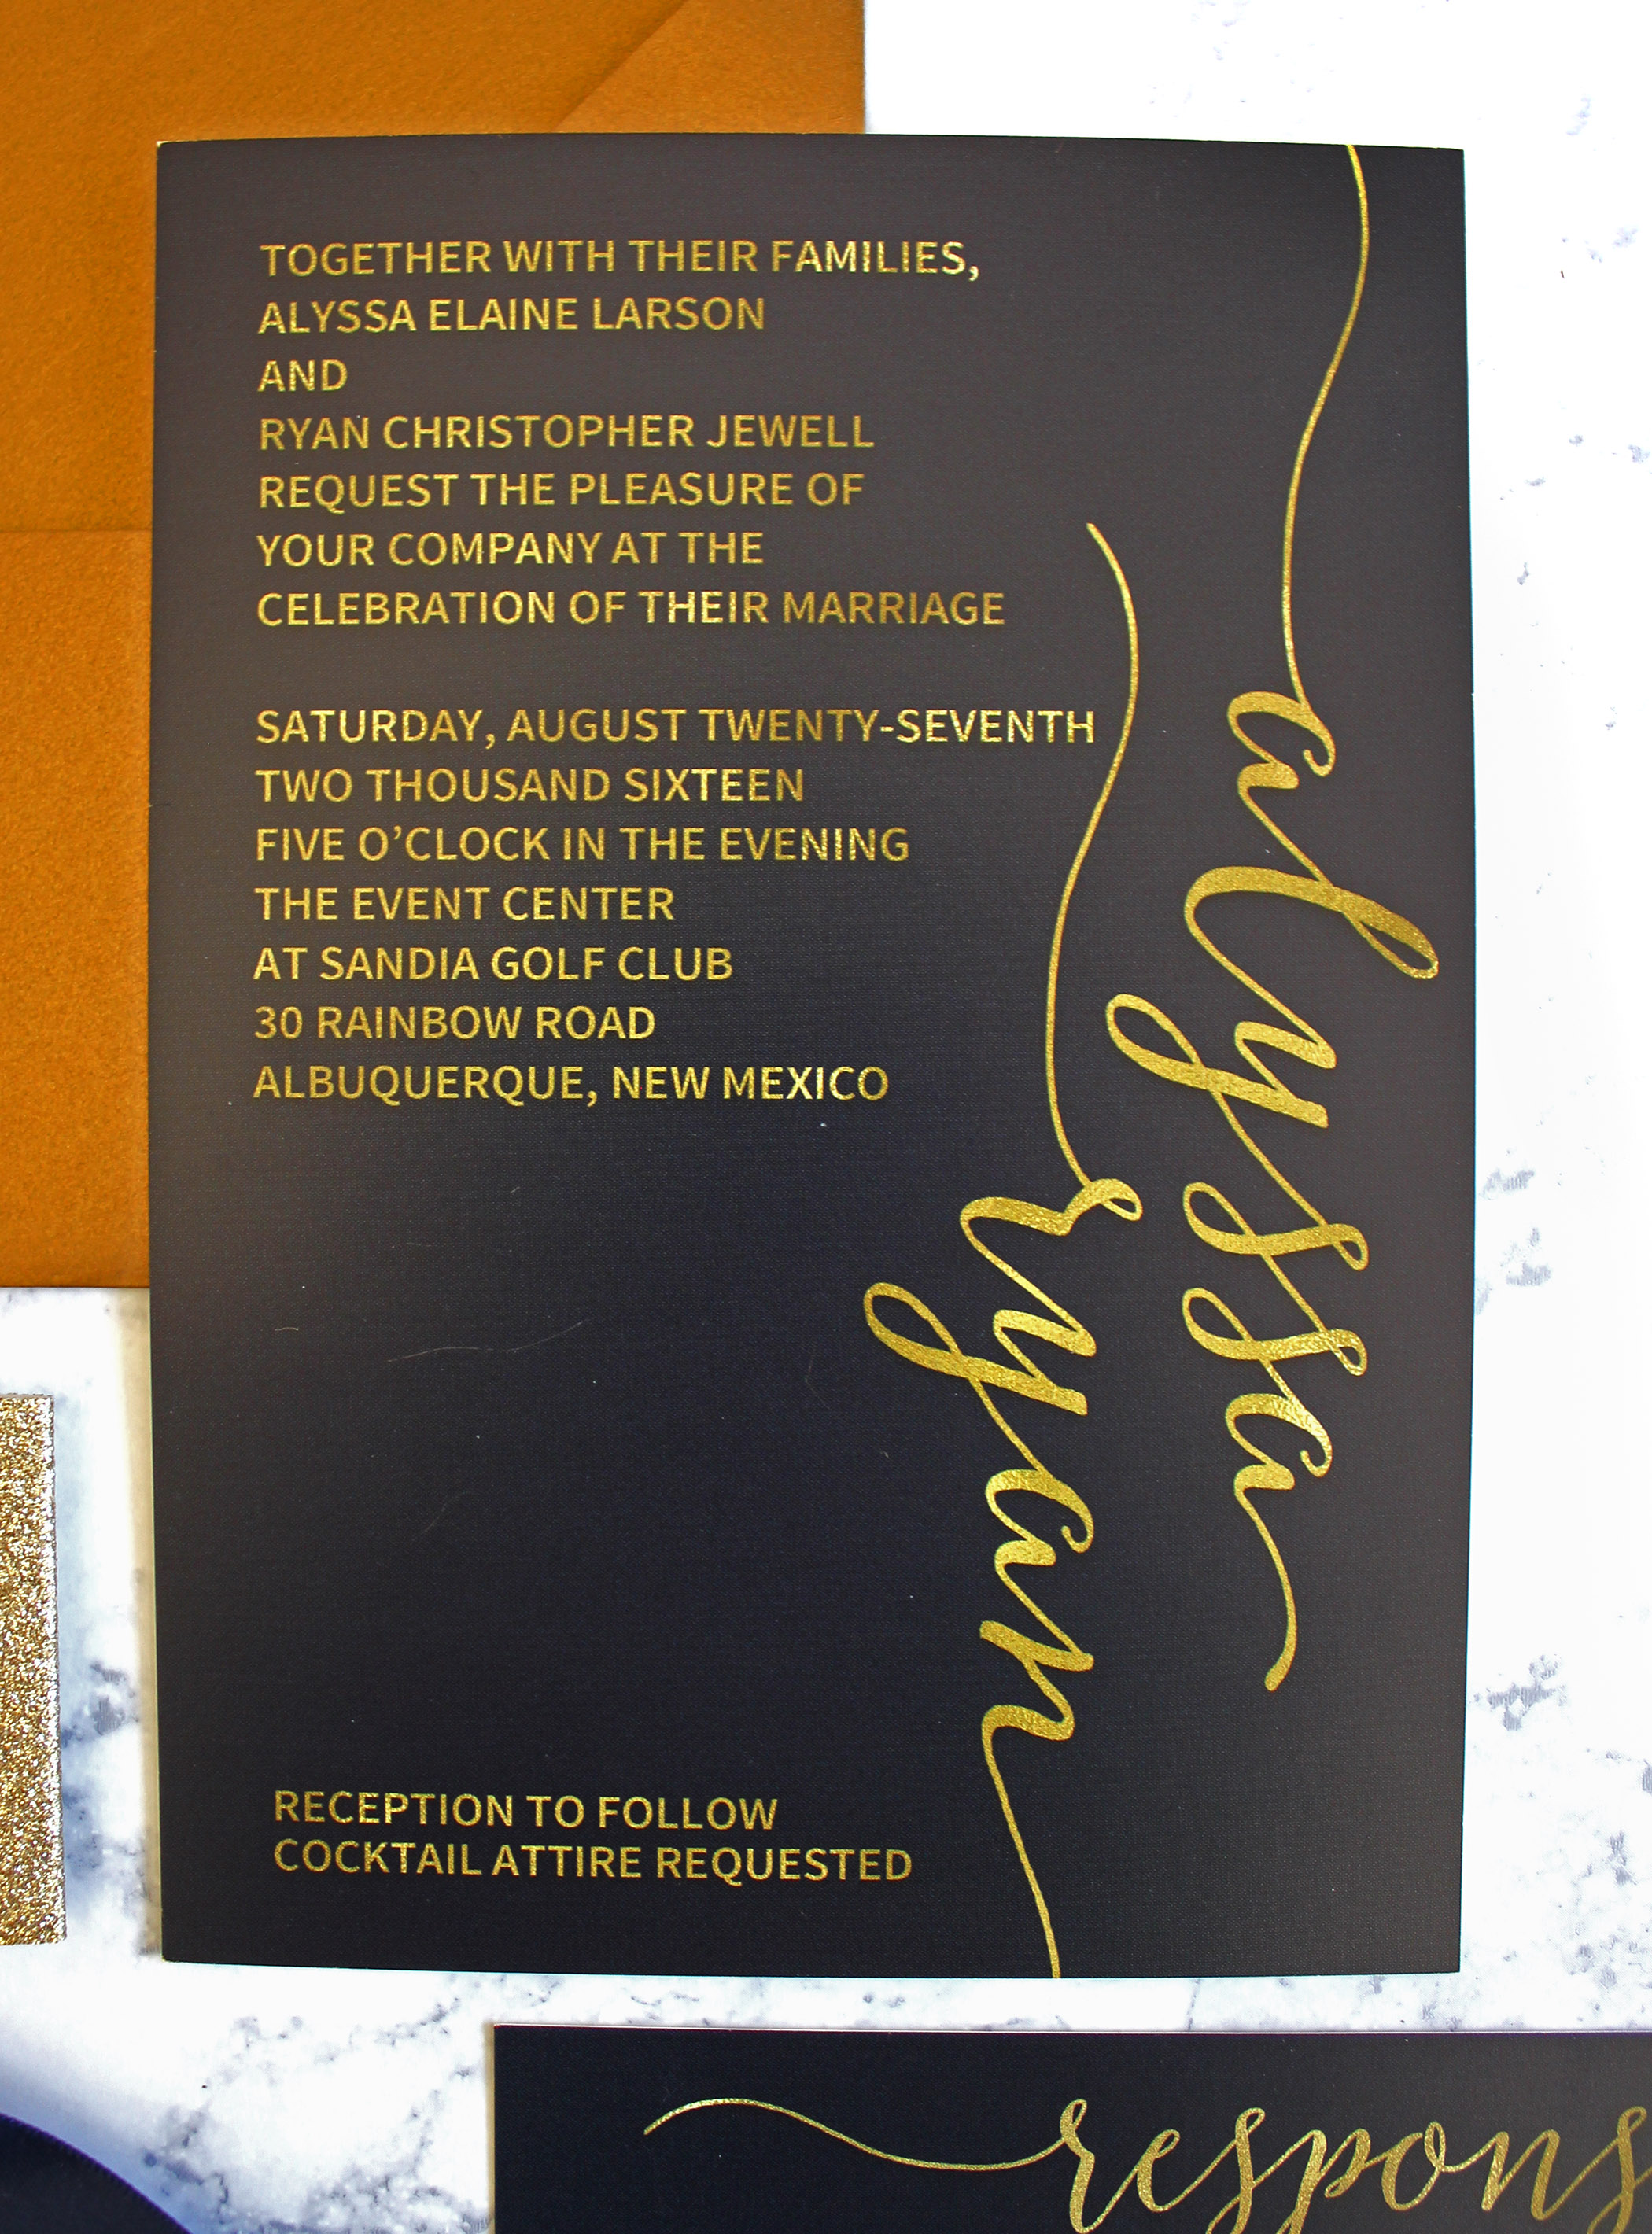 TOGETHER WITH THEIR FAMILIES,
ALYSSA ELAINE LARSON
AND
RYAN CHRISTOPHER JEWELL
REQUEST THE PLEASURE OF
YOUR COMPANY AT THE
CELEBRATION OF THEIR MARRIAGE
SATURDAY, AUGUST TWENTY-SEVENTH
TWO THOUSAND SIXTEEN
FIVE O’CLOCK IN THE EVENING
THE EVENT CENTER
AT SANDIA GOLF CLUB
30 RAINBOW ROAD
ALBUQUERQUE, NEW MEXICO
alyssa
ryan
RECEPTION TO FOLLOW
COCKTAIL ATTIRE REQUESTED
respons